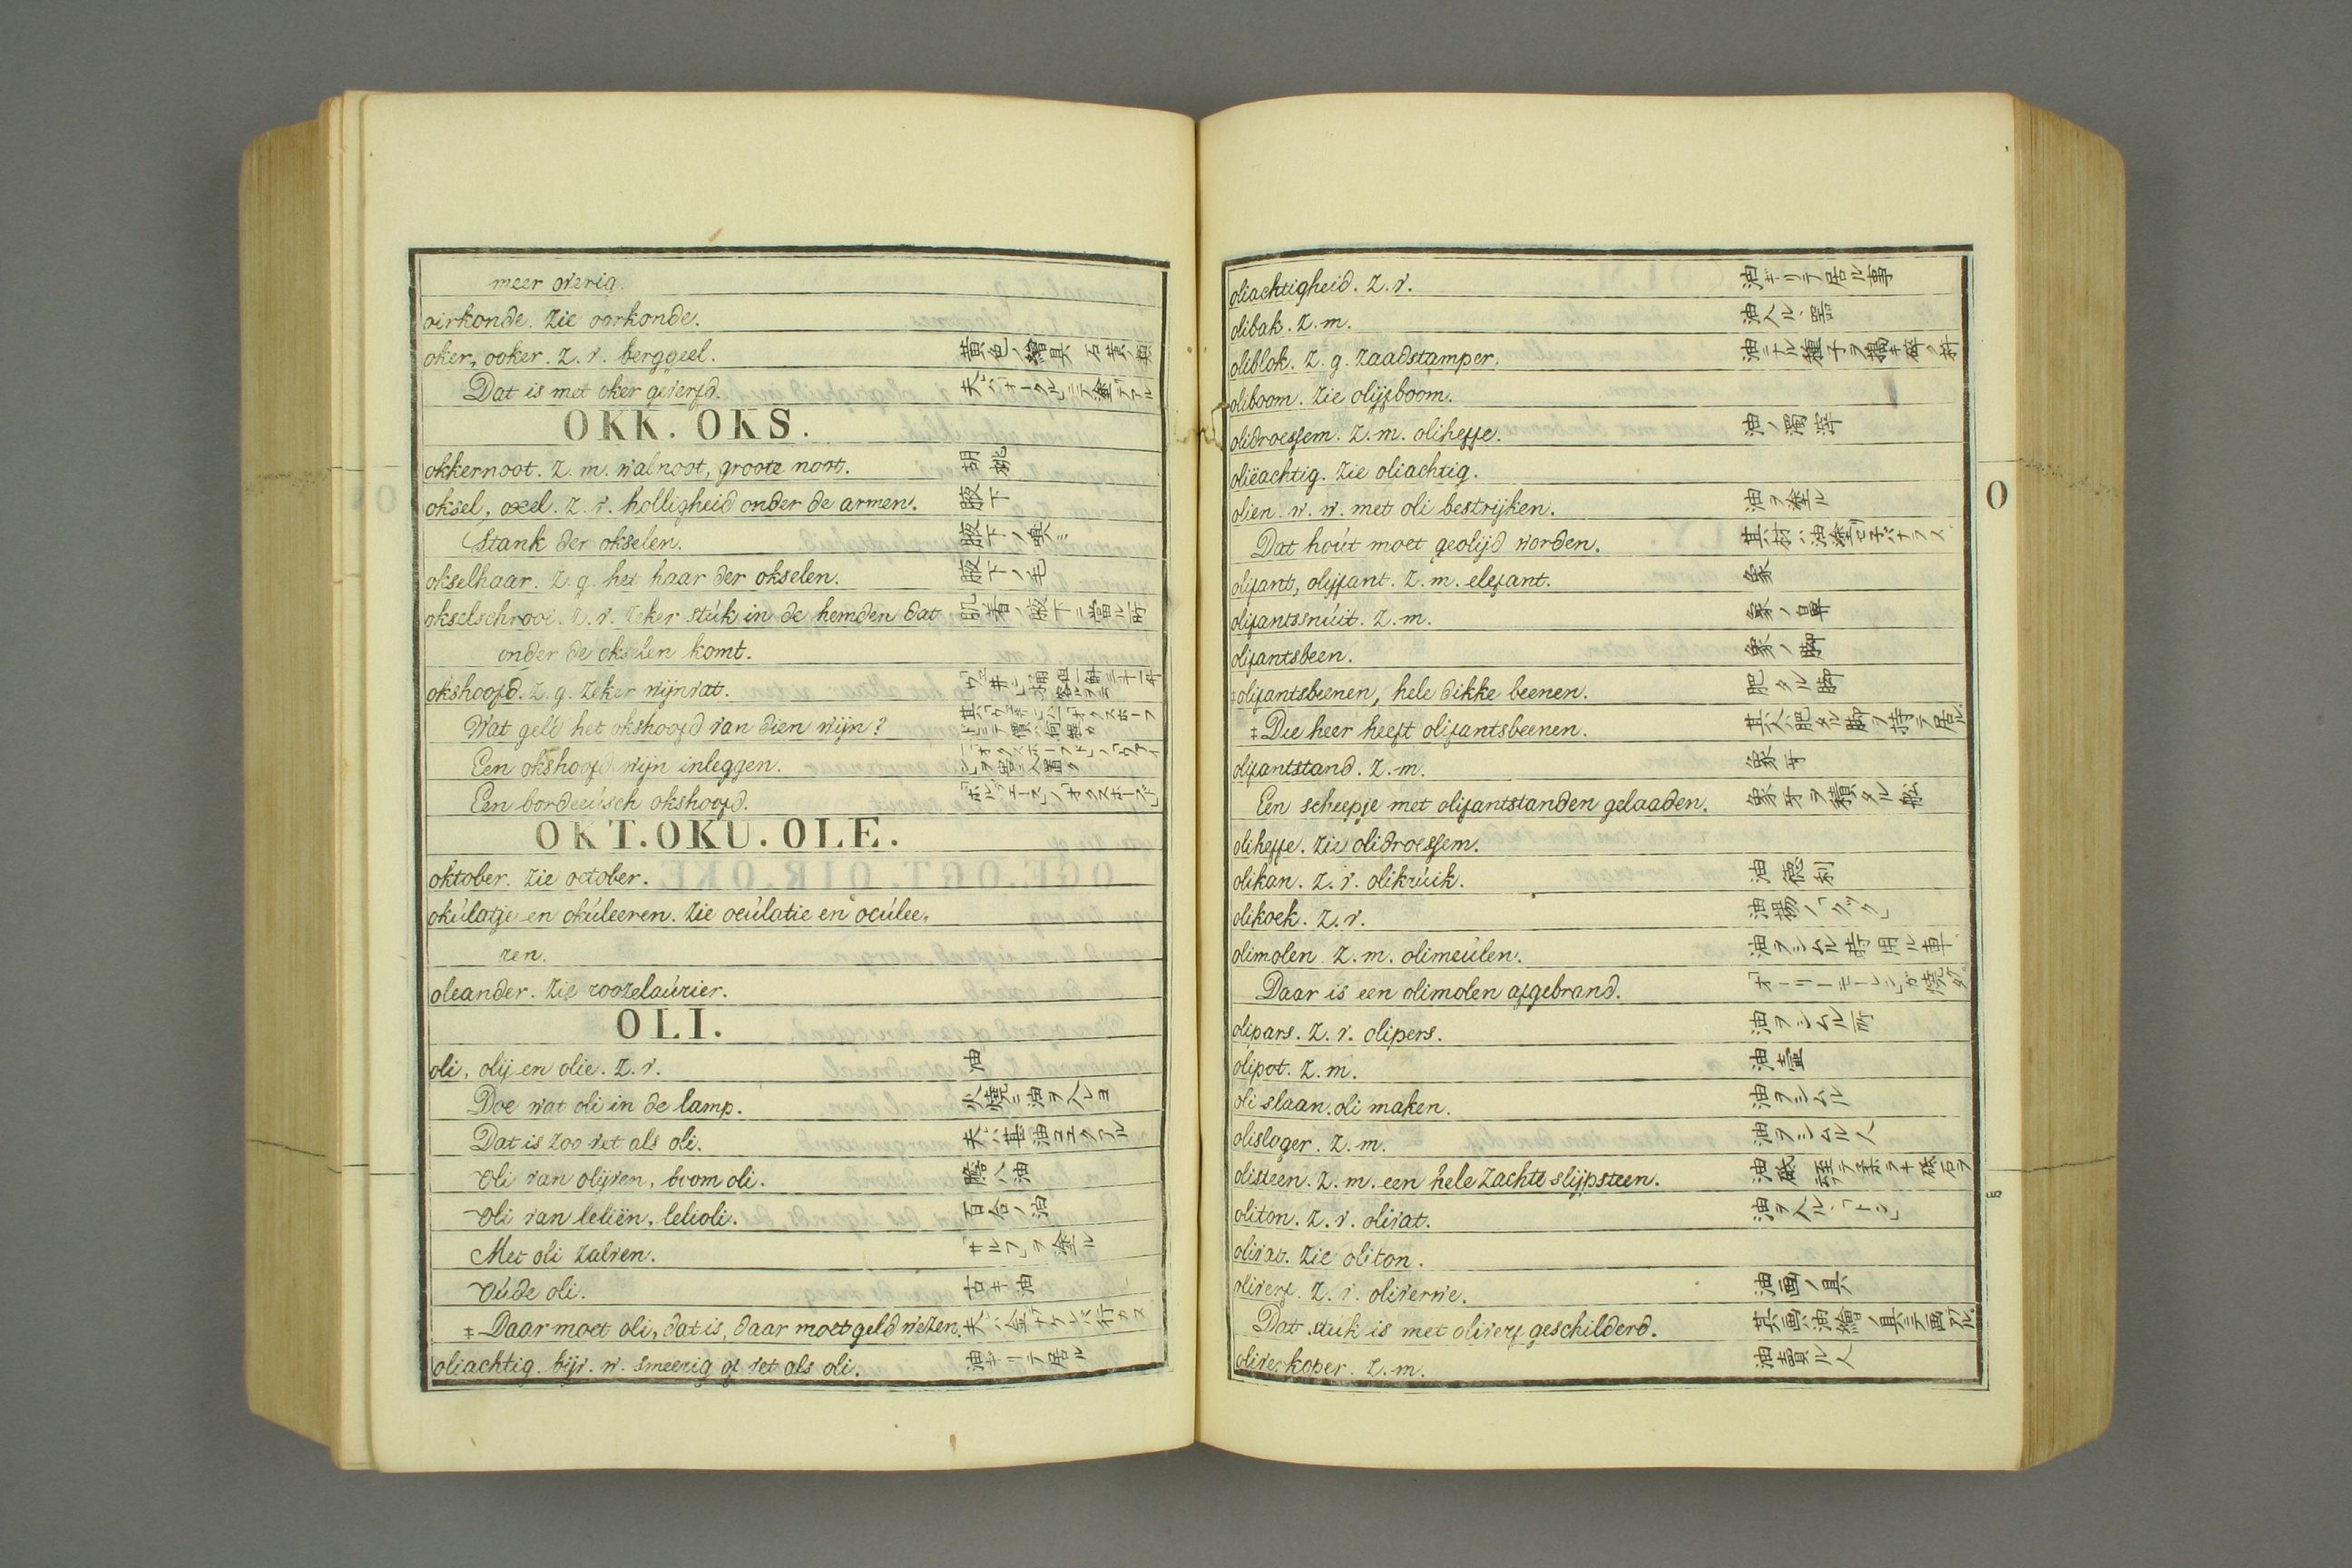 meer overig.
oirkonde. Zie oorkonde.
oker, ooker. z. v. berggeel. 黄色ノ繪具 石黄ノ類
Dat is met oker geverfd. 夫ハ「オークル」ニテ塗テアル
OKK. OKS.
okkernoot. z. m. walnoot, groote noot. 胡桃
oksel, oxel. z. v. holligheid onder de armen. 腋下
Stank der okselen. 腋下ノ臭ミ
okselhaar. z. g. het haar der okselen. 腋下ノ毛
okselschrooi. z. v. zeker stúk in de hemden dat 肌着ノ腋下ニ當ル所
onder de okselen komt.
okshoofd. z. g. zeker wijnvat.
Wat geld het okshoofd van dien wijn?
Een okshoofd wijn inleggen.
Een bordeeúsch okshoofd.
OKT. OKU. OLE.
oktober. Zie october.
okúlatje en okúleeren. Zie ocúlatie en ocúlee,
ren.
oleander. Zie roozelaúrier.
OLI.
oli, olij en olie. z. v. 油
Doe wat oli in de lamp. 火燒ニ油ヲ入レヨ
Dat is zoo vet als oli. 夫ハ甚油コエクアル
Oli van olijven, boom oli.
Oli van leliën, lelioli. 百合ノ油
Met oli zalven. 「サルフ」ヲ塗ル
Oúde oli. 古キ油
‡ Daar moet oli, dat is, daar moet geld wezen. 夫ハ金ナケレバ行カヌ
oliachtig. bijv. w. smeerig of vet als oli. 油ギリテ居ル
oliachtigheid. z. v. 油ギリテ居ル事
olibak. z. m. 油入ル器
oliblok. z. g. zaadstamper. 油ニナル種子ヲ搗キ碎ク杵
oliboom. Zie olijfboom.
olidroessem. z. m. oliheffe. 油ノ濁滓
olieachtig. Zie oliachtig.
olien. w. w. met oli bestrijken. 油ヲ塗ル
Dat hoút moet geolijd worden. 其材ハ油塗ラ子バナラヌ
olifant, olijfant. z. m. elefant. 象
olifantssnúit. z. m. 象ノ鼻
olifantsbeen. 象ノ脚
‡ olifantsbeenen, hele dikke beenen. 肥タル脚
‡ Die heer heeft olifantsbeenen. 其人肥タル脚ヲ持テ居ル
olifantstand. z. m. 象牙
Een scheepje met olifantstanden gelaaden. 象牙ヲ積タル舩
oliheffe. Zie olidroessem.
olikan. z. v. olikrúik. 油徳利
olikoek. z. v. 油揚ノ「クック」
olimolen. z. m. olimeúlen. 油ヲシムル時用ル車
Daar is een olimolen afgebrand. 「オーリーモーレン」ガ燒タ
olipars. z. v. olipers. 油ヲシムル所
olipot. z. m. 油壷
oli slaan. oli maken. 油ヲシムル
olisloger. z. m. 油ヲシムル人
olisteen. z. m. een hele zachte slijpsteen.
oliton. z. v. olivat. 油ヲ入ル「トン」
olivat. Zie oliton.
oliverf. z. v. oliverwe. 油画ノ具
Dat stúk is met oliverf geschilderd. 其画油繪ノ具ニテ画テアル
oliverkoper. z. m. 油賣ル人
O